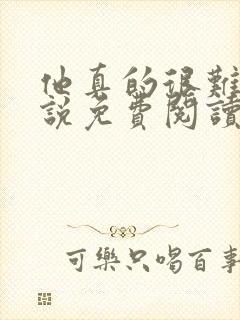 他真的很難
說免費閱讀
可樂只喝百事